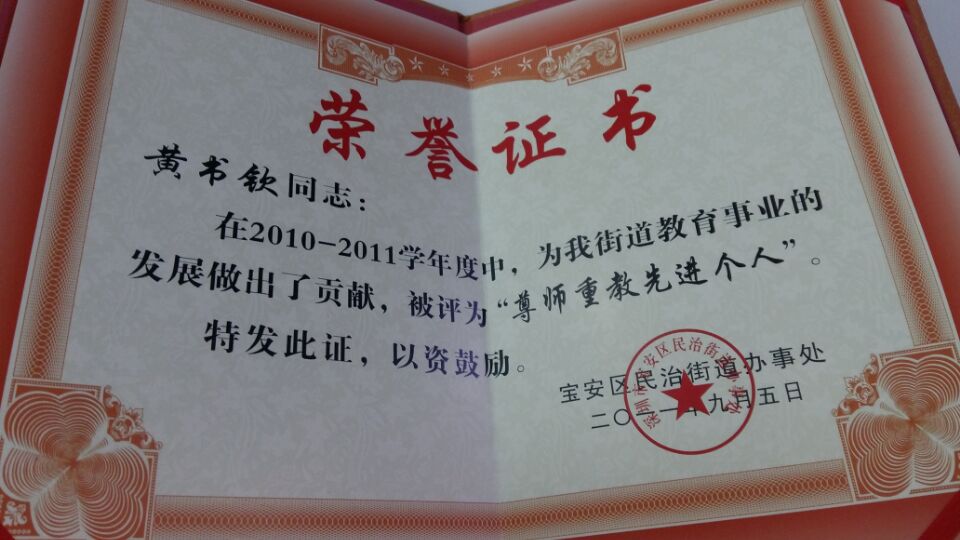 荣誉证书
黄书钦同志：
在2010-2011学年度中，为我街道教育事业的
发展做出了贡献，被评为“尊师重教先进个人”。
特发此证，以资鼓励。
宝安区民治街道办事处
二〇一一年九月五日